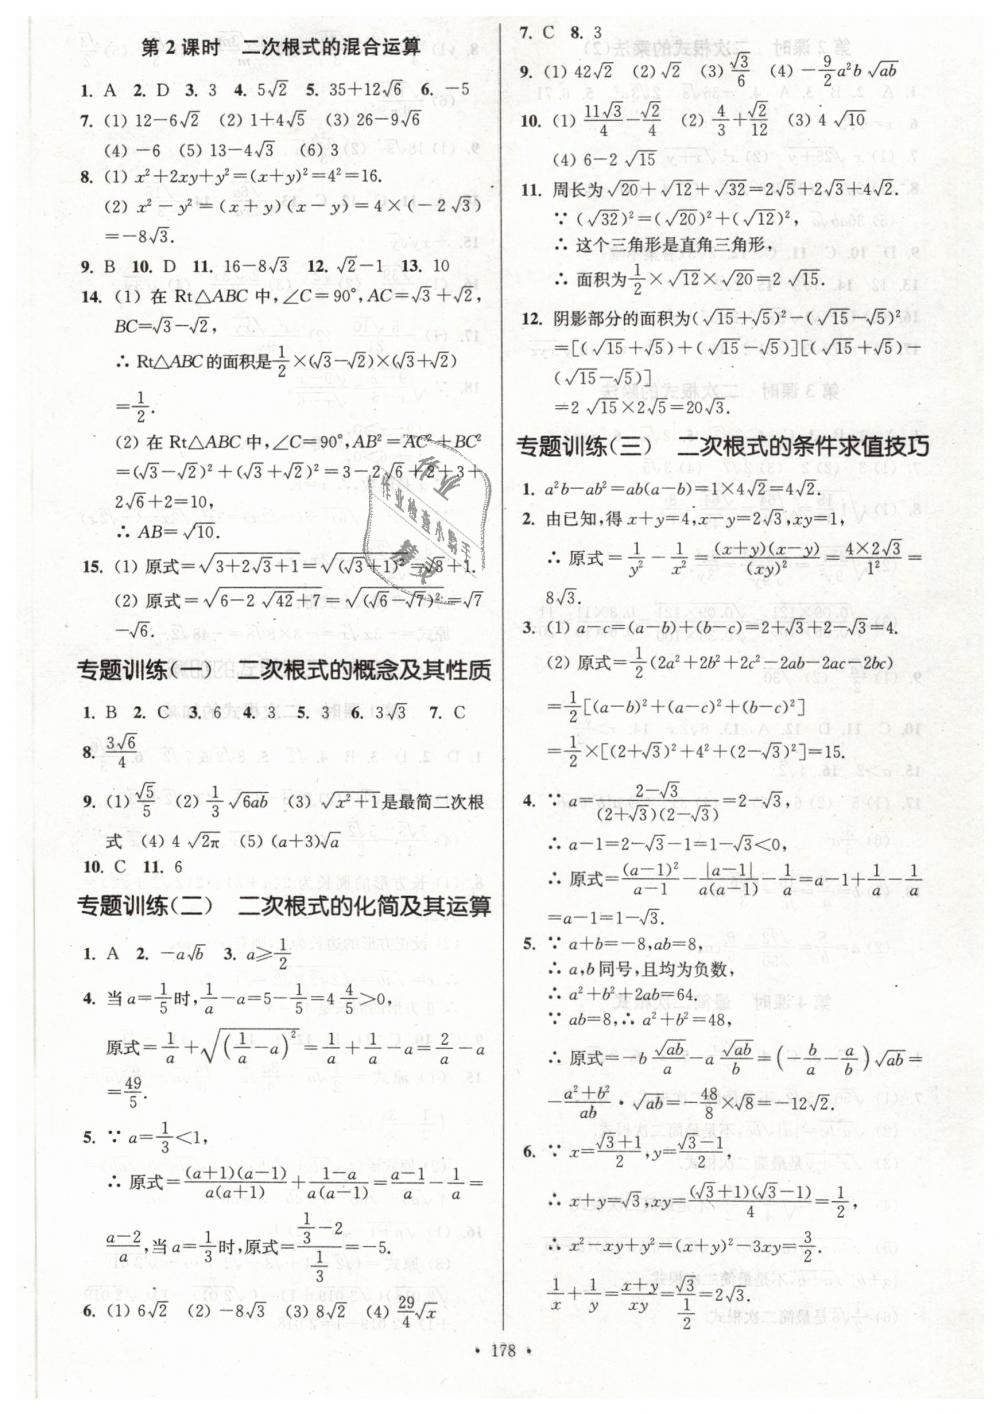 第2课时　二次根式的混合运算
1. A　2. D　3. 3　4. 5√2　5. 35+12√6　6. -5
7. (1) 12-6√2　(2) 1+4√5　(3) 26-9√6
(4) -6　(5) 13-4√3　(6) 3
8. (1) x²+2xy+y²=(x+y)²=4²=16.
(2) x²-y²=(x+y)(x-y)=4×(-2√3)
=-8√3.
9. B　10. D　11. 16-8√3　12. √2-1　13. 10
14. (1) 在 Rt△ABC 中,∠C=90°,AC=√3+√2,
BC=√3-√2,
∴ Rt△ABC的面积是1/2×(√3-√2)×(√3+√2)
=1/2.
(2) 在 Rt△ABC 中,∠C=90°,AB²=AC²+BC²
=(√3-√2)²+(√3+√2)²=3-2√6+2+3+
2√6+2=10,
∴ AB=√10.
15. (1) 原式=√(3+2√3+1)=√((√3+1)²)=√3+1.
(2) 原式=√(6-2√42+7)=√((√6-√7)²)=√7
-√6.
专题训练(一)　二次根式的概念及其性质
1. B　2. C　3. 6　4. 3　5. 3　6. 3√3　7. C
8. 3√6/4
9. (1) √5/5　(2) 1/3√(6ab)　(3) √(x²+1)是最简二次根
式　(4) 4√(2π)　(5) (a+3)√a
10. C　11. 6
专题训练(二)　二次根式的化简及其运算
1. A　2. -a√b　3. a≥1/2
4. 当a=1/5时,1/a-a=5-1/5=4 4/5>0,
原式=1/a+√((1/a-a)²)=1/a+1/a-a=2/a-a
=49/5.
5. ∵ a=1/3<1,
∴ 原式=(a+1)(a-1)/a(a+1)+(1-a)/a(a-1)=(a-1)/a-1/a=
(a-2)/a,当a=1/3时,原式=(1/3-2)/(1/3)=-5.
6. (1) 6√2　(2) -8√3　(3) 8√2　(4) 29/4√x
7. C　8. 3
9. (1) 42√2　(2) √2　(3) √3/6　(4) -9/2a²b√(ab)
10. (1) 11√3/4-√2/4　(2) 4/3+√2/12　(3) 4√10
(4) 6-2√15
11. 周长为√20+√12+√32=2√5+2√3+4√2.
∵ (√32)²=(√20)²+(√12)²,
∴ 这个三角形是直角三角形,
∴ 面积为1/2×√12×√20=2√15.
12. 阴影部分的面积为(√15+√5)²-(√15-√5)²
=[(√15+√5)+(√15-√5)][(√15+√5)-
(√15-√5)]
=2√15×2√5=20√3.
专题训练(三)　二次根式的条件求值技巧
1. a²b-ab²=ab(a-b)=1×4√2=4√2.
2. 由已知,得x+y=4,x-y=2√3,xy=1,
∴ 原式=1/y²-1/x²=(x+y)(x-y)/(xy)²=4×2√3/1²=
8√3.
3. (1) a-c=(a-b)+(b-c)=2+√3+2-√3=4.
(2) 原式=1/2(2a²+2b²+2c²-2ab-2ac-2bc)
=1/2[(a-b)²+(a-c)²+(b-c)²]
=1/2×[(2+√3)²+4²+(2-√3)²]=15.
4. ∵ a=(2-√3)/(2+√3)(2-√3)=2-√3,
∴ a-1=2-√3-1=1-√3<0,
∴ 原式=(a-1)²/(a-1)-|a-1|/a(a-1)-1/a=a-1+1/a-1/a
=a-1=1-√3.
5. ∵ a+b=-8,ab=8,
∴ a,b同号,且均为负数,
∴ a²+b²+2ab=64.
∵ ab=8,∴ a²+b²=48,
∴ 原式=-b√(ab)/a-a√(ab)/b=(-b/a-a/b)√(ab)=
-(a²+b²)/ab·√(ab)=-48/8×√8=-12√2.
6. ∵ x=(√3+1)/2,y=(√3-1)/2,
∴ x+y=√3,xy=(√3+1)(√3-1)/4=1/2,
∴ x²-xy+y²=(x+y)²-3xy=3/2.
1/x+1/y=(x+y)/xy=√3/(1/2)=2√3.
• 178 •